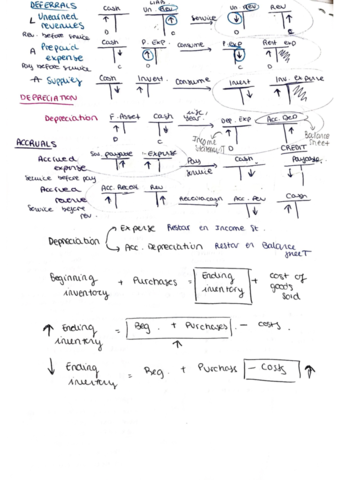 DEFERRALS Cash Liab Un Rev Service Un Rev Rev
L Unearned revenues
Rev. before service D C D C
A Prepaid expense Cash P. Exp Consume P. Exp Rent exp
Pay before service C D
A Supplies Cash Invent. Consume Invent Inv. Expense
DEPRECIATION
Depreciation F. Asset Cash year. Dep. Exp Acc. Dep
D C Income Statement D CREDIT Balance Sheet
ACCRUALS
Accrued expense payable Expense Pay Service Cash Payable
Service before pay
Accrued revenue Acc. Receiv Rev Receive cash Acc. Rev Cash
Service before rev.
Depreciation Expense Restar en Income St.
Acc. Depreciation Restar en Balance sheet
Beginning inventory + Purchases = Ending inventory + cost of goods sold
↑ Ending inventory = Beg. + Purchases - costs.
↑
↓ Ending inventory = Beg. + Purchase - Costs ↑